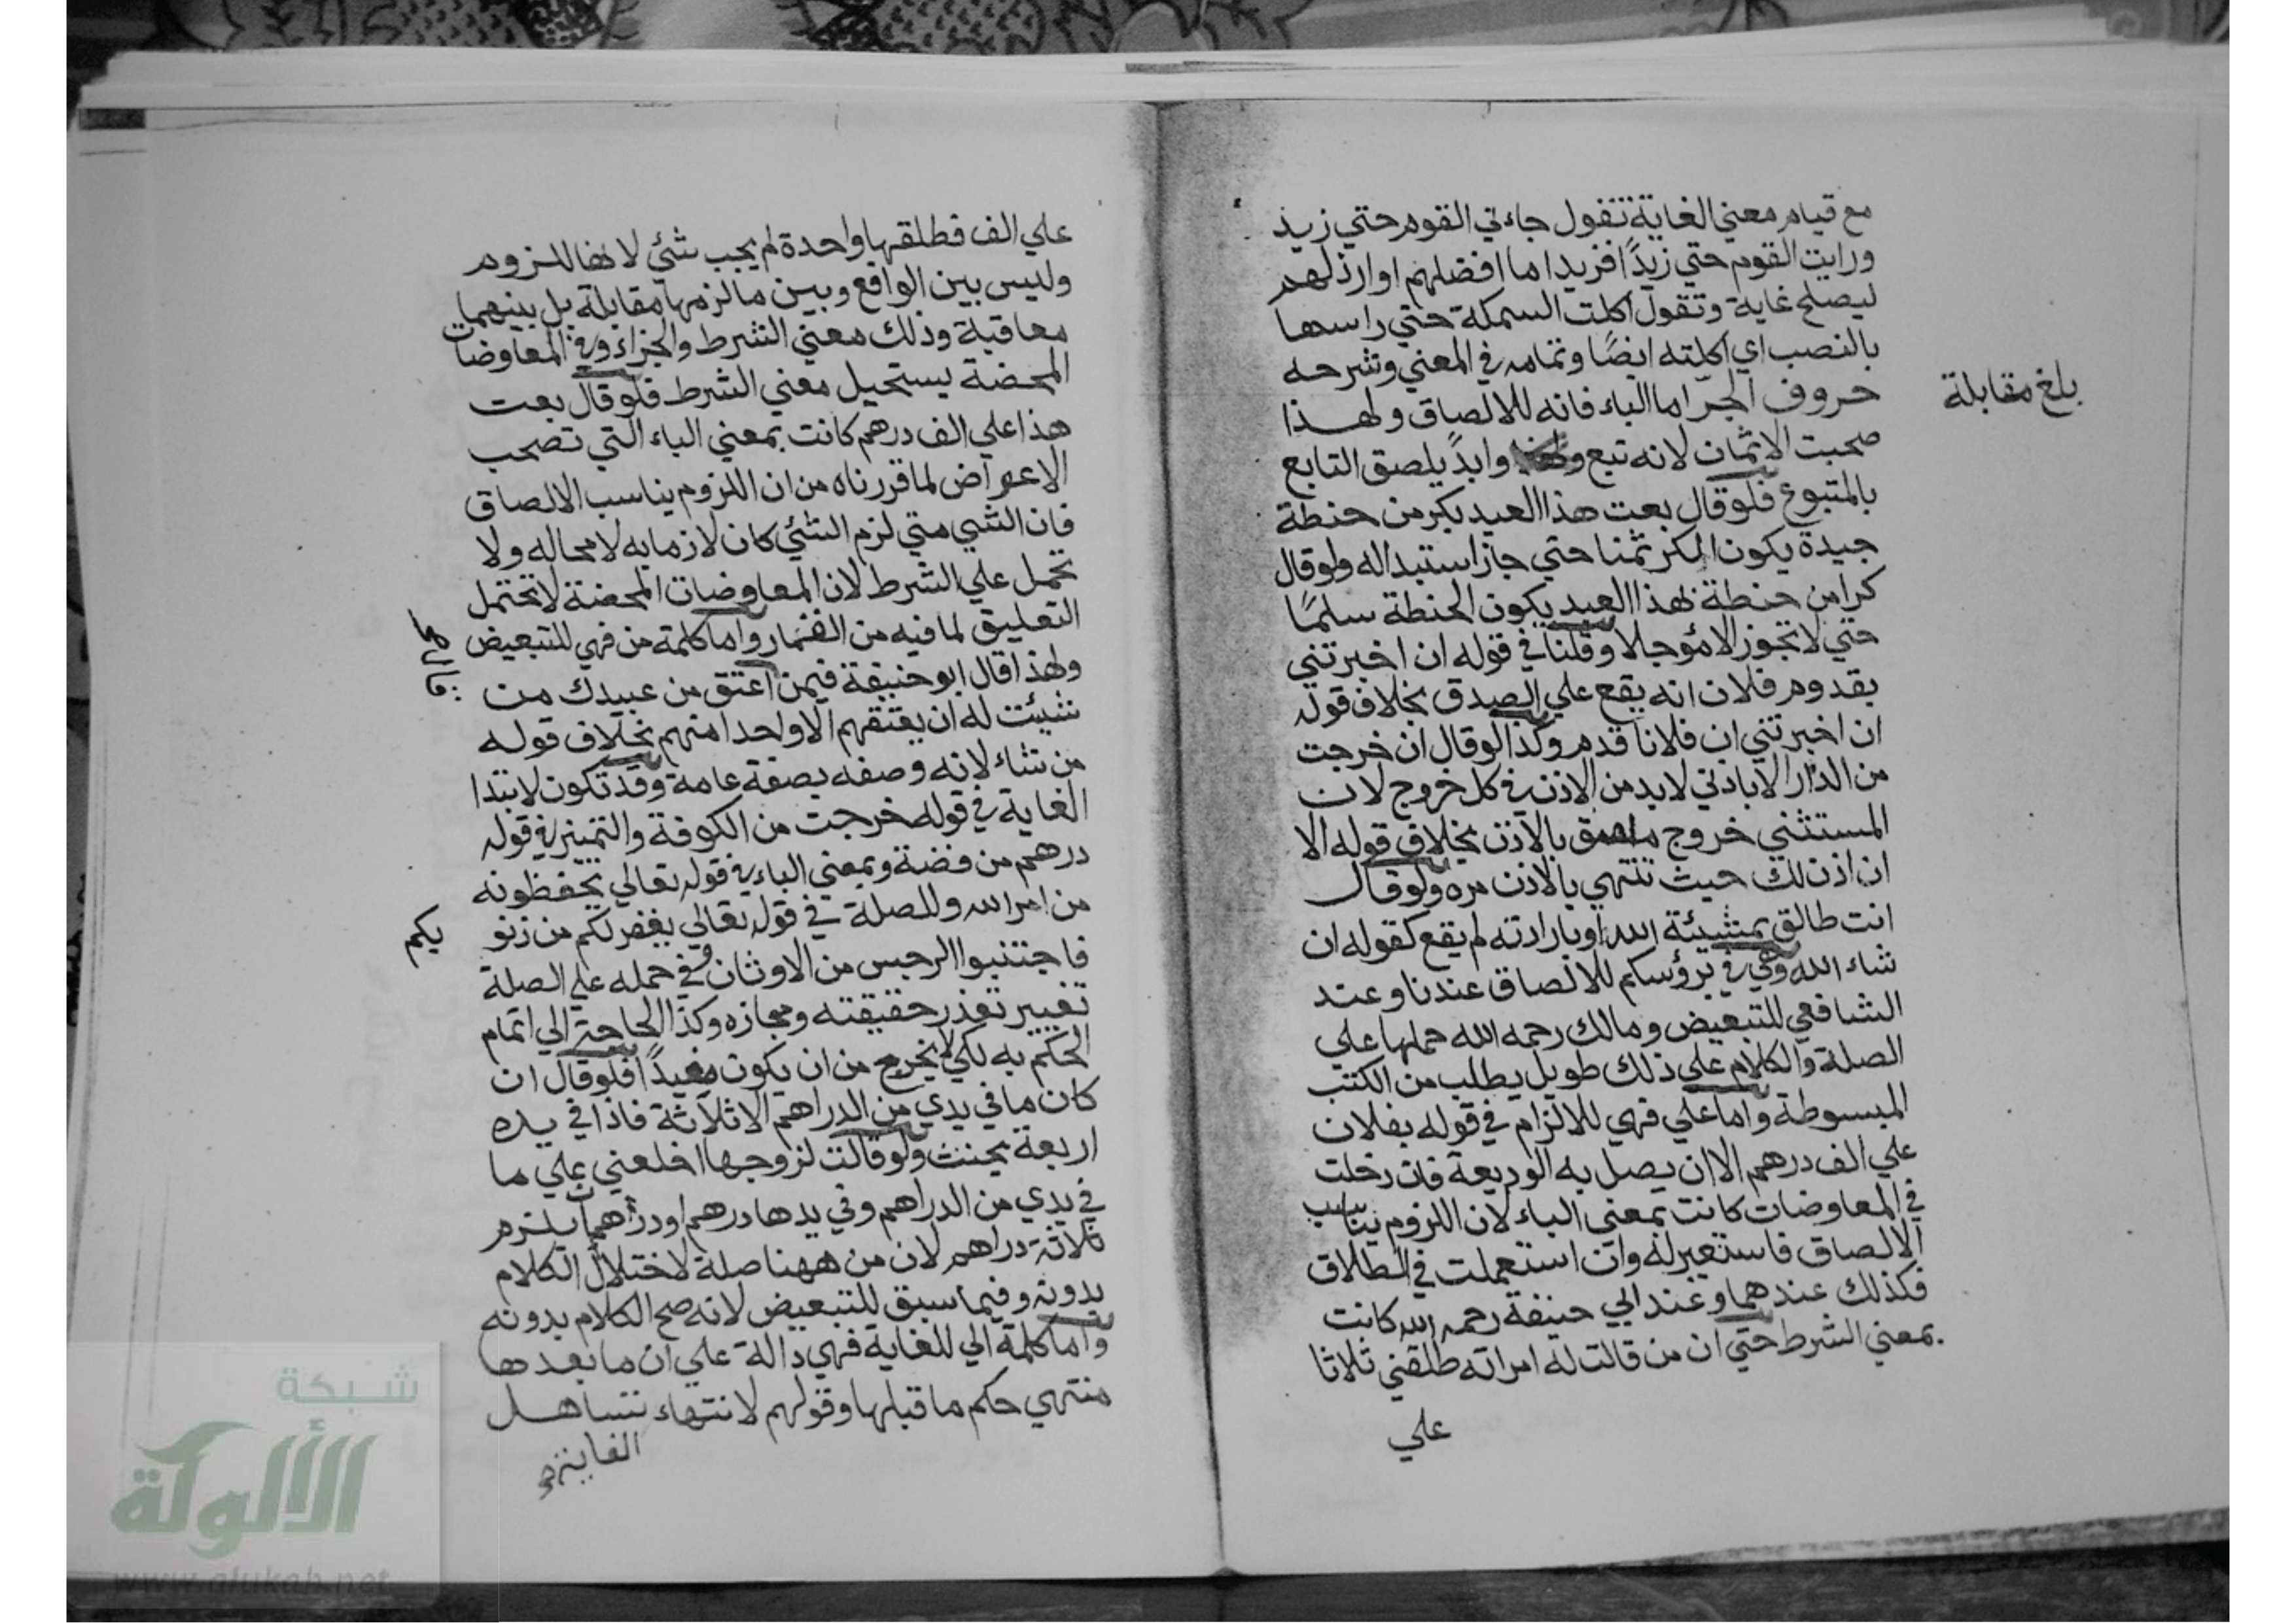 مع قيام معني الغاية تقول جاءني القوم حتي زيد
ورايت القوم حتي زيدًا فزيد اما افضلهم او ارذلهم
ليصلح غاية وتقول اكلت السمكة حتي راسها
بالنصب اي اكلته ايضًا وتمامه في المعني وشرحه
حروف الجرّ اما الباء فانه للالصاق ولهذا
بلغ مقابلة
صحبت الاثمان لانه تبع وابدًا يلصق التابع
بالمتبوع فلو قال بعت هذا العبد بكر من حنطة
جيدة يكون الكر ثمنا حتي جاز استبداله ولو قال
كرا من حنطة بهذا العبد يكون الحنطة سلمًا
حتي لا تجوز الا مؤجلا وقلنا في قوله ان اخبرتني
بقدوم فلان انه يقع علي الصدق بخلاف قوله
ان اخبرتني ان فلانا قدم وكذا لو قال ان خرجت
من الدار الا باذني لا بد من الاذن في كل خروج لان
المستثني خروج ملصق بالاذن بخلاف قوله الا
ان اذن لك حيث تنتهي بالاذن مره ولو قال
انت طالق بمشيئة الله او بارادته لم يقع كقوله ان
شاء الله وهي في برؤسكم للالصاق عندنا وعند
الشافعي للتبعيض ومالك رحمه الله حملها علي
الصلة والكلام علي ذلك طويل يطلب من الكتب
المبسوطة واما علي فهي للالزام في قوله بفلان
علي الف درهم الا ان يصل به الوديعة فان دخلت
في المعاوضات كانت بمعني الباء لان اللزوم يناسب
الالصاق فاستعير له وان استعملت في الطلاق
فكذلك عندهما وعند ابي حنيفة رحمه الله كانت
بمعني الشرط حتي ان من قالت له امراته طلقني ثلاثا
علي
علي الف فطلقها واحدة لم يجب شئي لانها للزوم
وليس بين الواقع وبين ما لزمها مقابلة بل بينهما
معاقبة وذلك معني الشرط والجزاء وفي المعاوضات
المحضة يستحيل معني الشرط فلو قال بعت
هذا علي الف درهم كانت بمعني الباء التي تصحب
الاعواض لما قررناه من ان اللزوم يناسب الالصاق
فان الشي متي لزم الشئي كان لازما به لا محاله ولا
تحمل علي الشرط لان المعاوضات المحضة لا تحتمل
التعليق لما فيه من القمار واما كلمة من فهي للتبعيض
ولهذا قال ابو حنيفة فيمن اعتق من عبيدك من
شيئت له ان يعتقهم الا واحدا منهم بخلاف قوله
من شاء لانه وصفه بصفة عامة وقد تكون لابتدا
الغاية في قوله خرجت من الكوفة والتمييز في قوله
درهم من فضة وبمعني الباء في قوله تعالي يحفظونه
من امر الله وللصلة في قوله تعالي يغفر لكم من ذنو بكم
فاجتنبوا الرجس من الاوثان وفي حمله علي الصلة
تغيير تعذر حقيقته ومجازه وكذا الحاجة الي اتمام
الحكم به لكي لا يخرج من ان يكون مفيدًا فلو قال ان
كان ما في يدي من الدراهم الا ثلاثة فاذا في يده
اربعة يحنث ولو قالت لزوجها اخلعني علي ما
في يدي من الدراهم وفي يدها درهم او درهمان يلزم
ثلاثة دراهم لان من ههنا صلة لاختلال الكلام
بدونه وفيما سبق للتبعيض لانه صح الكلام بدونه
واما كلمة الي للغاية فهي دالة علي ان ما بعدها
منتهي حكم ما قبلها وقولهم لانتهاء تساهل
الغاية
شبكة
الألوكة
www.alukah.net